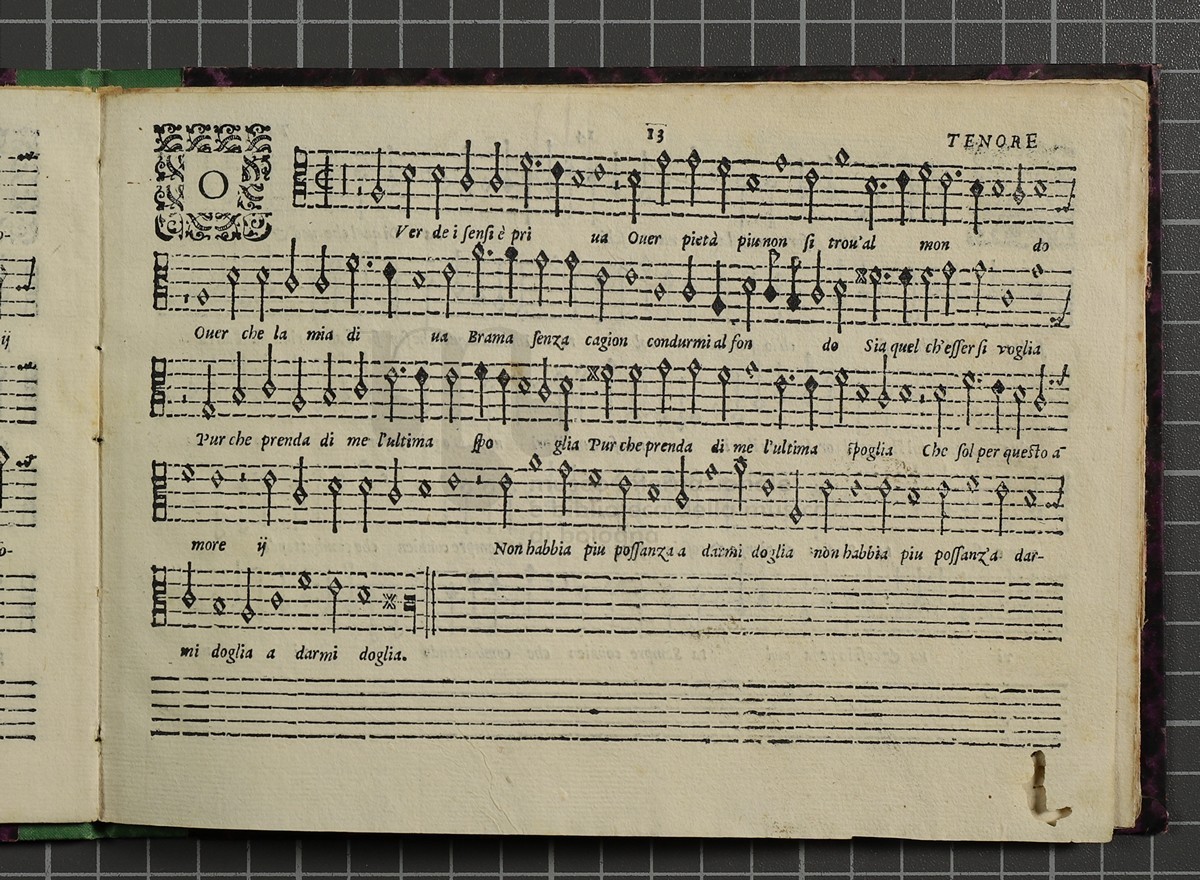 13
TENORE
O
Ver de i ſenſi è pri ua Ouer pietà piu non ſi trou'al mon do
Ouer che la mia di ua Brama ſenza cagion condurmi al fon do Sia quel ch'eſſer ſi voglia
Pur che prenda di me l'ultima ſpo glia Pur che prenda di me l'ultima ſpoglia Che ſol per queſto a-
more ij Non habbia piu poſſanza a darmi doglia non habbia piu poſſanz'a dar-
mi doglia a darmi doglia.
o-
ij
o-